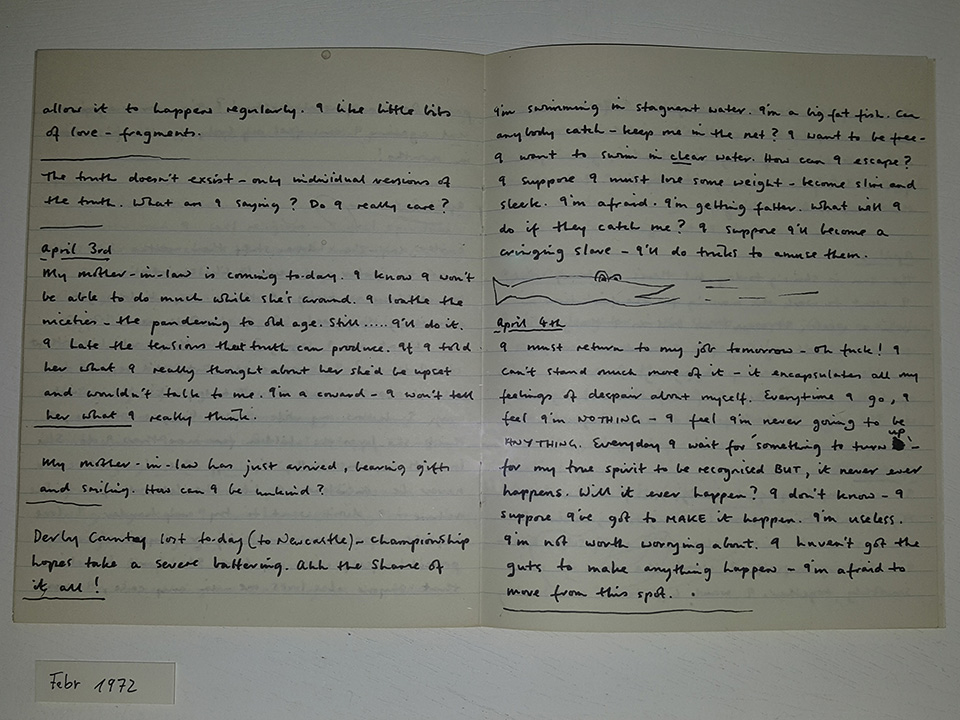 allow it to happen regularly. I like little bits
of love - fragments.
The truth doesn't exsist - only individual versions of
the truth. What am I saying? Do I really care?
April 3rd
My mother-in-law is coming to-day. I know I won't
be able to do much while she's around. I loathe the
niceties - the pandering to old age. Still ..... I'll do it.
I hate the tensions that truth can produce. If I told
her what I really thought about her she'd be upset
and wouldn't talk to me. I'm a coward - I won't tell
her what I really think.
My mother-in-law has just arrived, bearing gifts
and smiling. How can I be unkind?
Derby Country lost to-day (to Newcastle) - championship
hopes take a severe battering. Ahh the shame of
it, all!
I'm swimming in stagnent water. I'm a big fat fish. Can
anybody catch - keep me in the net? I want to be free -
I want to swim in clear water. How can I escape?
I suppose I must lose some weight - become slim and
sleek. I'm afraid. I'm getting fatter. What will I
do if they catch me? I suppose I'll become a
cringing slave - I'll do tricks to amuse them.
April 4th
I must return to my job tomorrow - oh fuck! I
can't stand much more of it - it encapsulates all my
feelings of despair about myself. Everytime I go, I
feel I'm NOTHING - I feel I'm never going to be
ANYTHING. Everyday I wait for 'something to turn up' -
for my true spirit to be recognised BUT, it never ever
happens. Will it ever happen? I don't know - I
suppose I've got to MAKE it happen. I'm useless.
I'm not worth worrying about. I haven't got the
guts to make anything happen - I'm afraid to
move from this spot.
Febr 1972